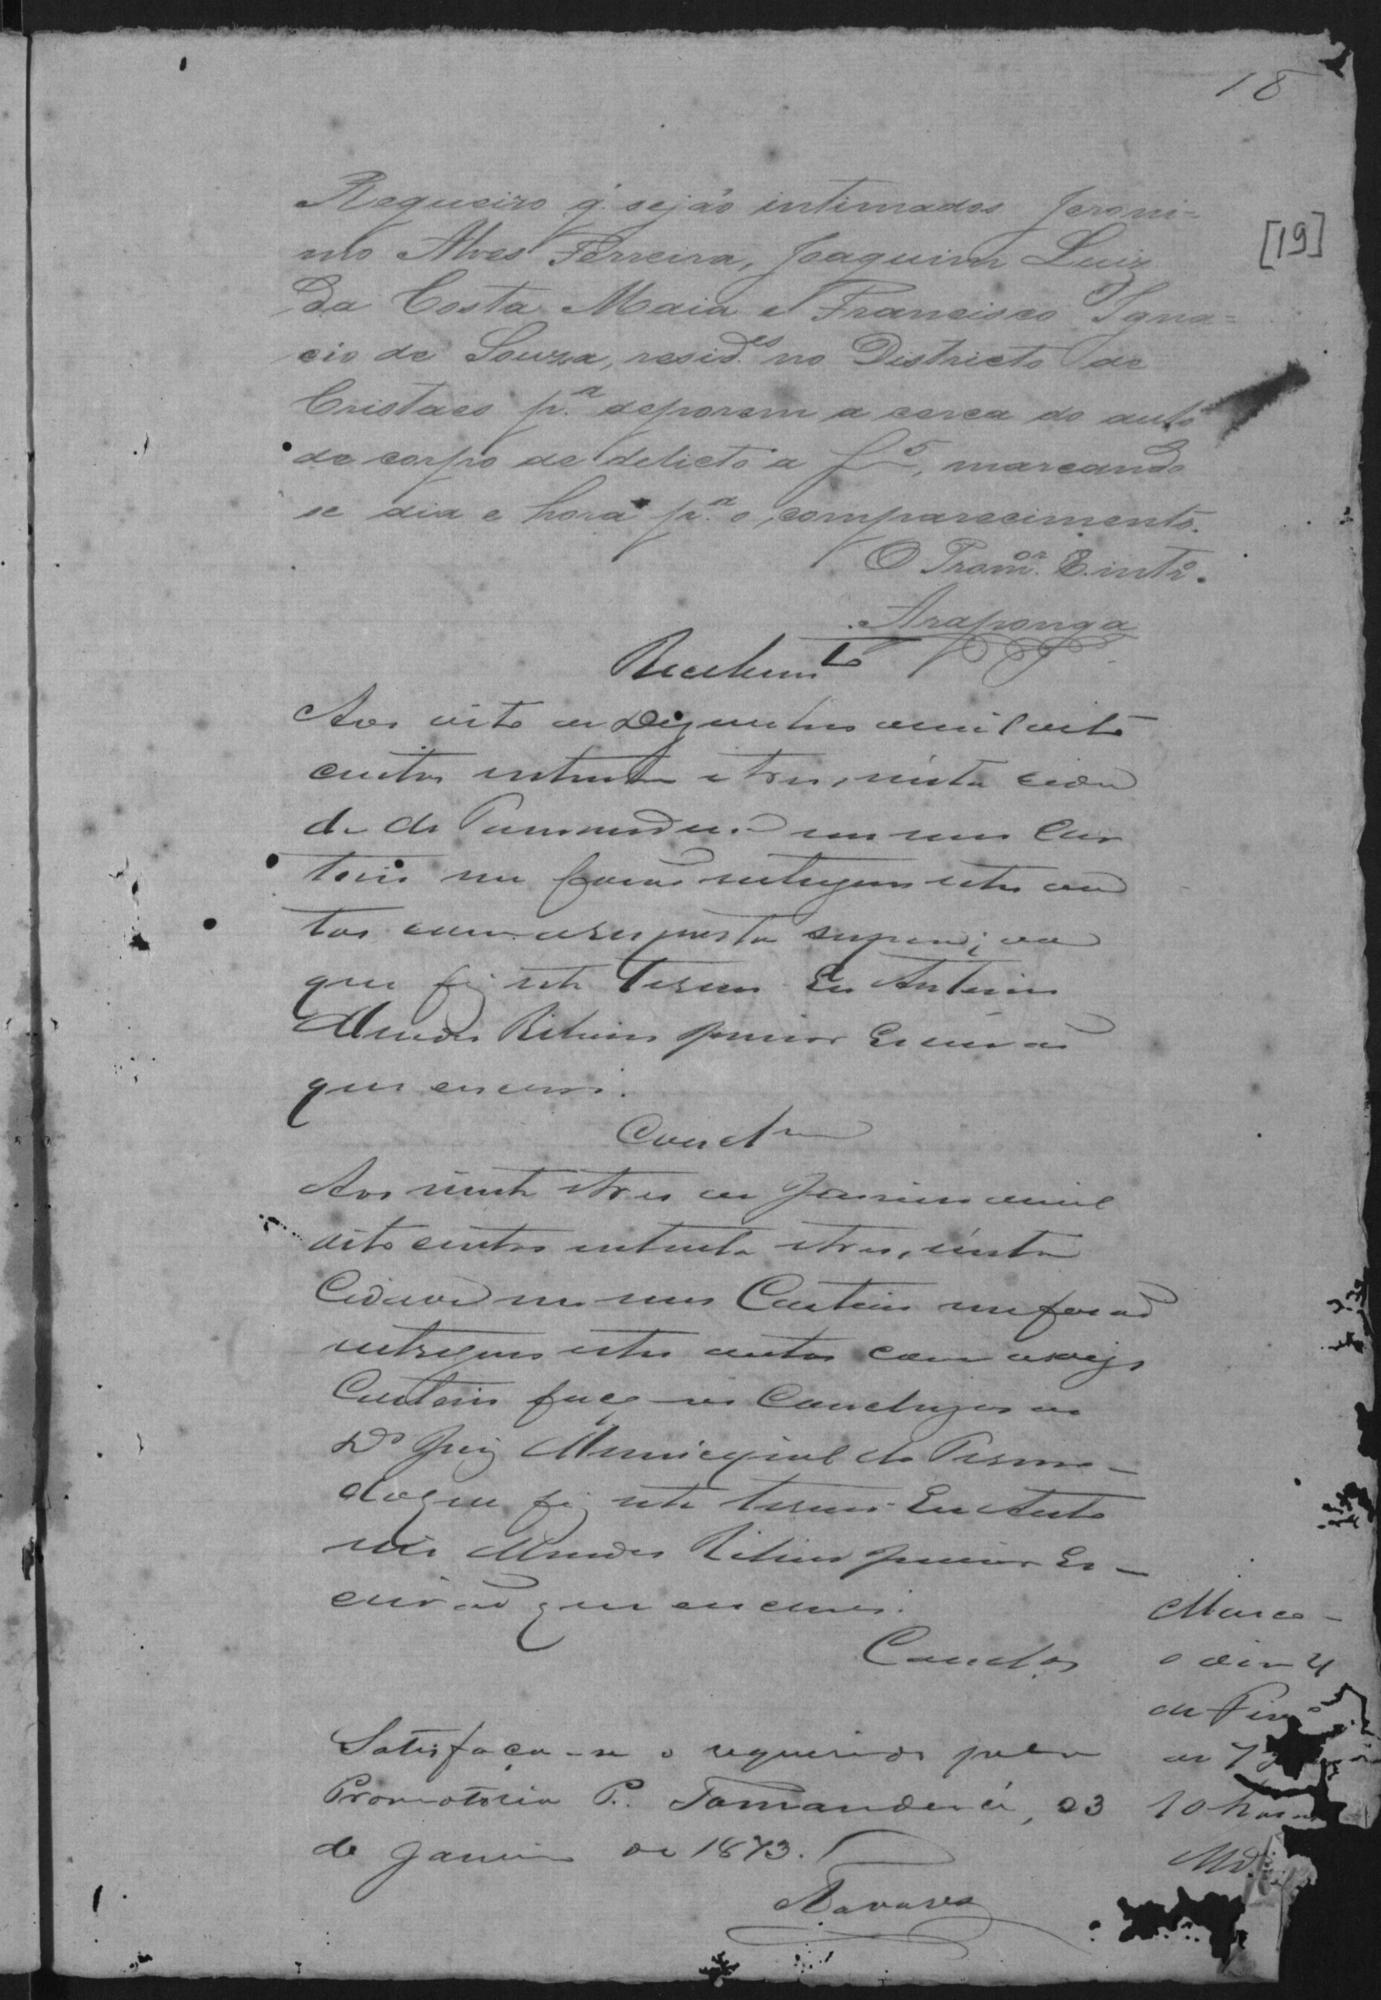 18
[19]
Requeiro q. sejão intimados Jeroni=
mo Alves Ferreira, Joaquim Luiz
da Costa Maia e Francisco Igna=
cio de Souza, resid.es no Districto de
Cristaes p.a deporem a cerca do auto
de corpo de delicto a f 5, marcando
se dia e hora p.a o comparecimento.
O Prom.or P. int.o
Araponga
Recebim.to
Aos oito de Dezembro de mil oito
centos e setenta e tres, nesta cida
de de em meu Car
torio me forão entregues estes au
tos com a resposta supra; do
que fiz este termo Eu Antonio
Mendes Ribeiro Junior Escrivão
que escrevi.
Concl.am
Aos vinte e tres de Janeiro de mil
oito centos e setenta e tres, nesta
Cidade em meu Cartorio me forão
entregues estes autos com
Cartorio faço os Concluzos ao
D.or Juiz Municipal do Termo
do que fiz este termo Eu Anto
nio Mendes Ribeiro Junior Es-
crivão que escrevi.
Concl.os
Satisfaça-se o requerido pela
Promotoria P. Tamanduá, 23
de Janeiro de 1873.
Tavares
Marco
o dia 4
de
as
10 horas